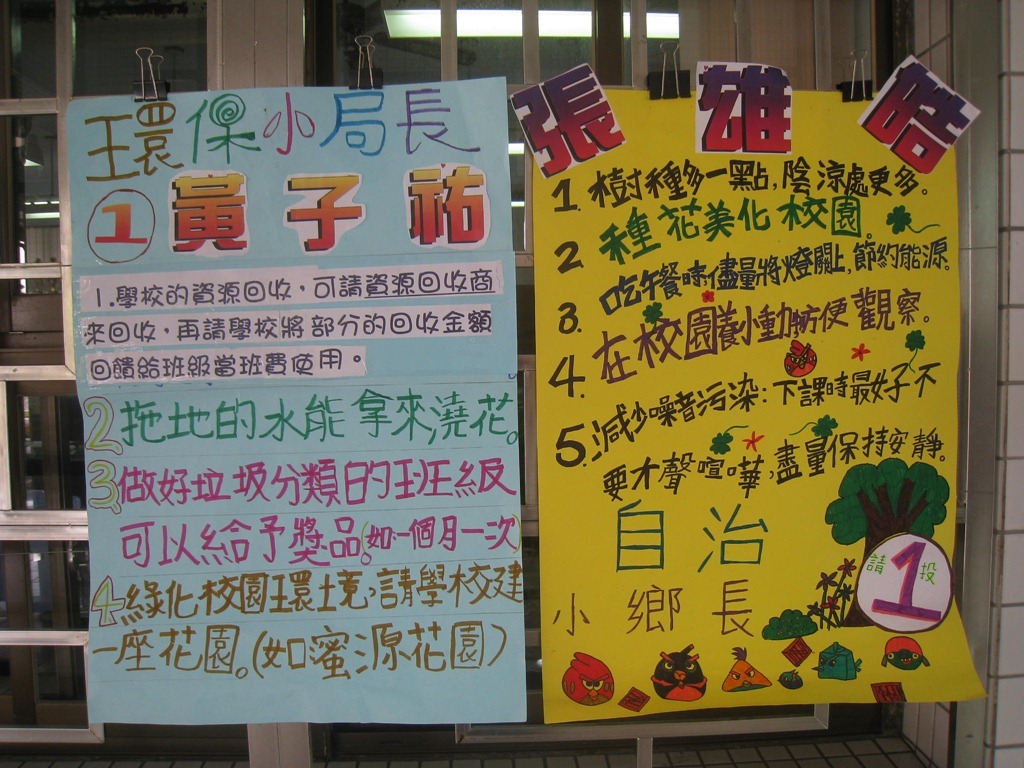 環保小局長
1 黃子祐
1.學校的資源回收，可請資源回收商
來回收，再請學校將部分的回收金額
回饋給班級當班費使用。
2拖地的水能拿來澆花。
3做好垃圾分類的班級
可以給予獎品。(如:一個月一次)
4綠化校園環境，請學校建
一座花園。(如蜜源花園)
張雄皓
1. 樹種多一點,陰涼處更多。
2 種花美化校園。
3. 吃午餐時儘量將燈關上,節約能源。
4. 在校園養小動物方便觀察。
5.減少噪音污染:下課時最好不
要大聲喧嘩,盡量保持安靜。
自治
小鄉長
請投
1